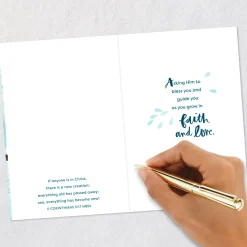 If anyone is in Christ,
there is a new creation:
everything old has passed away;
see, everything has become new!
II CORINTHIANS 5:17 NRSV
Asking Him to
bless you and
guide you
as you grow in
faith
and love.